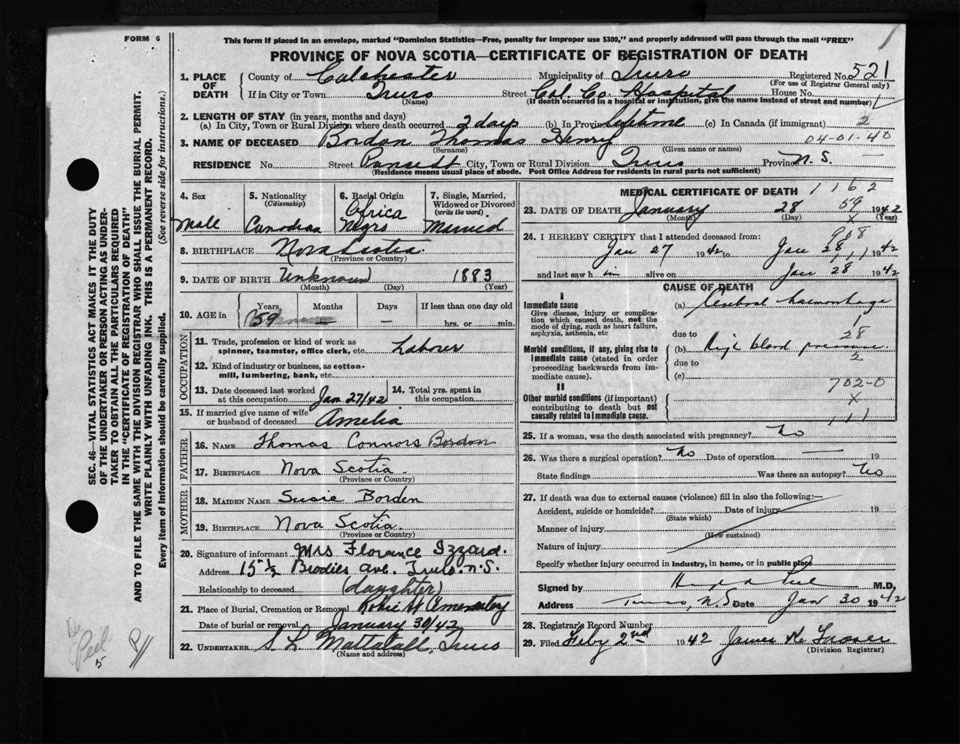 FORM 6
This form if placed in an envelope, marked "Dominion Statistics—Free, penalty for improper use $300," and properly addressed will pass through the mail "FREE"
PROVINCE OF NOVA SCOTIA—CERTIFICATE OF REGISTRATION OF DEATH
1. PLACE OF DEATH County of Colchester Municipality of Truro Registered No. 521
(For use of Registrar General only)
If in City or Town Truro Street Col. Co. Hospital House No.
(Name) (If death occurred in a hospital or institution, give the name instead of street and number)
2. LENGTH OF STAY (in years, months and days)
(a) In City, Town or Rural Division where death occurred 2 days (b) In Province Lifetime (c) In Canada (if immigrant) 2
04-01-40
3. NAME OF DECEASED Bordon Thomas Henry
(Surname) (Given name or names)
RESIDENCE No. Street City, Town or Rural Division Truro Province N.S.
(Residence means usual place of abode. Post Office Address for residents in rural parts not sufficient)
4. Sex Male
5. Nationality (Citizenship) Canadian
6. Racial Origin Africa Negro
7. Single, Married, Widowed or Divorced (write the word) Married
8. BIRTHPLACE Nova Scotia
(Province or Country)
9. DATE OF BIRTH Unknown 1883
(Month) (Day) (Year)
10. AGE in Years 59 Months — Days — If less than one day old
hrs. or min.
OCCUPATION
11. Trade, profession or kind of work as spinner, teamster, office clerk, etc. Laborer
12. Kind of industry or business, as cotton-mill, lumbering, bank, etc.
13. Date deceased last worked at this occupation Jan 27/42
14. Total yrs. spent in this occupation
15. If married give name of wife or husband of deceased Amelia
FATHER
16. NAME Thomas Connors Bordon
17. BIRTHPLACE Nova Scotia
(Province or Country)
MOTHER
18. MAIDEN NAME Susie Borden
19. BIRTHPLACE Nova Scotia
(Province or Country)
20. Signature of informant Mrs Florence Izzard.
Address 15½ Brodies Ave. Truro. N.S.
Relationship to deceased (daughter)
21. Place of Burial, Cremation or Removal Robie St
Date of burial or removal January 30/42
22. UNDERTAKER S. L. Mattatall, Truro
(Name and address)
MEDICAL CERTIFICATE OF DEATH 1162
23. DATE OF DEATH January 28 59 1942
(Month) (Day) (Year)
24. I HEREBY CERTIFY that I attended deceased from: 908
Jan 27 1942 to Jan 28 1942
and last saw h im alive on Jan 28 1942
CAUSE OF DEATH
I
Immediate cause
Give disease, injury or complication which caused death, not the mode of dying, such as heart failure, asphyxia, asthenia, etc
(a) Cerebral haemorrhage
due to
Morbid conditions, if any, giving rise to immediate cause (stated in order proceeding backwards from immediate cause).
28
(b) High blood pressure.
2
due to
(c)
702-0
II
Other morbid conditions (if important) contributing to death but not causally related to immediate cause.
X
11
25. If a woman, was the death associated with pregnancy? No
26. Was there a surgical operation? No Date of operation — 19
State findings Was there an autopsy? No
27. If death was due to external causes (violence) fill in also the following:—
Accident, suicide or homicide? Date of injury 19
(State which)
Manner of injury
(How sustained)
Nature of injury
Specify whether injury occurred in industry, in home, or in public place
Signed by M.D.
Address Truro, N.S. Date Jan 30 1942
28. Registrar's Record Number
29. Filed Feby 2nd 1942 James
(Division Registrar)
SEC. 46—VITAL STATISTICS ACT MAKES IT THE DUTY
OF THE UNDERTAKER OR PERSON ACTING AS UNDER-
TAKER TO OBTAIN ALL THE PARTICULARS REQUIRED
IN THE "CERTIFICATE OF REGISTRATION OF DEATH"
AND TO FILE THE SAME WITH THE DIVISION REGISTRAR WHO SHALL ISSUE THE BURIAL PERMIT.
WRITE PLAINLY WITH UNFADING INK. THIS IS A PERMANENT RECORD.
Every item of Information should be carefully supplied. (See reverse side for instructions.)